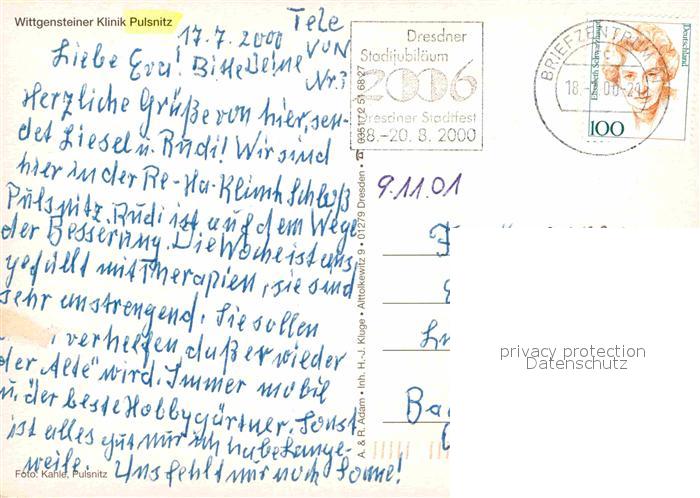 Wittgensteiner Klinik Pulsnitz
17.7.2000
Tele
von
Nr.?
Liebe Eva! Bitte Deine
Herzliche Grüße von hier, sen-
det Liesel u. Rudi! Wir sind
hier in der Re-Ha-Klinik Schloß
Pulsnitz. Rudi ist auf dem Wege
der Besserung. Die Woche ist aus-
gefüllt mit Therapien, sie sind
sehr anstrengend. Sie sollen
verhelfen, daß er wieder
"der Alte" wird. Immer mobil
u. der beste Hobbygärtner. Sonst
ist alles gut nur ich habe Lange-
weile. Uns fehlt nur noch Sonne!
Foto: Kahle, Pulsnitz
A. & R. Adam • Inh. H.-J. Kluge • Alttolkewitz 9 • 01279 Dresden • ☎ 0351 / 2 51 68 27
Dresdner
Stadtjubiläum
2006
Dresdner Stadtfest
18.-20. 8. 2000
BRIEFZENTRUM
18.
Elisabeth Schwarzhaupt
Deutschland
100
9.11.01
Ba
privacy protection
Datenschutz